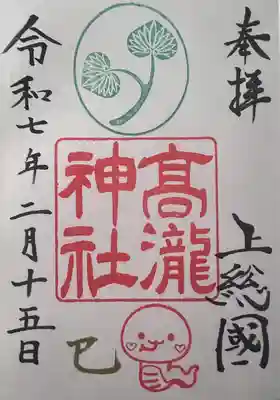 奉拝
上総國
高瀧
神社
巳
令和七年二月十五日